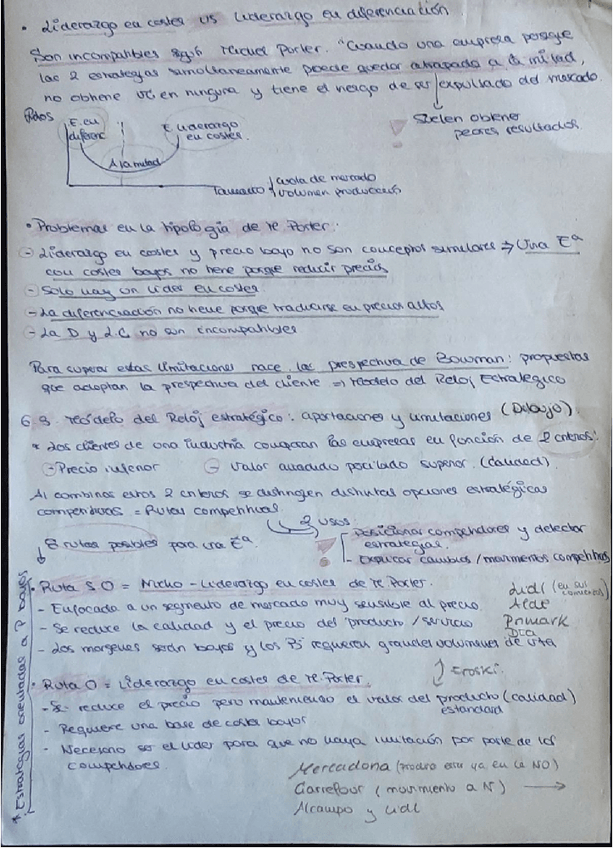 • Liderazgo en costes VS Liderazgo en diferenciación
Son incompatibles según Michael Porter. "Cuando una empresa persigue
las 2 estrategias simultaneamente puede quedar atrapada a la mitad,
no obtiene VC en ninguna y tiene el riesgo de ser expulsado del mercado
Suelen obtener
peores resultados.
E. en
diferenc
E. liderazgo
en costes.
A la mitad
Tamaño
Cuota de mercado
Volumen producción
• Problemas en la tipología de M. Porter:
- Liderazgo en costes y precio bajo no son conceptos similares ⇒ Una Eª
con costes bajos no tiene porque reducir precios
- Solo hay un líder en costes.
- La diferenciación no tiene porque traducirse en precios altos
- La D y LC no son incompatibles
Para superar estas limitaciones nace las prespectiva de Bowman: propuestas
que adoptan la prespectiva del cliente ⇒ Modelo del Reloj Estratégico
6.3. Modelo del Reloj estratégico: aportaciones y limitaciones (Dibujo).
* Los clientes de una industria comparan las empresas en función de 2 criterios:
- Precio inferior
- Valor añadido percibido superior. (calidad).
Al combinar estos 2 criterios se distinguen distintas opciones estratégicas
competitivas = Rutas competitivas.
2 usos
Posicionar competidores y detectar
estrategias.
Explicar cambios/movimientos competitivos
8 rutas posibles para una Eª.
* Estrategias orientadas a P bajos
• Ruta SO = Nicho - Liderazgo en costes de M. Porter.
- Enfocada a un segmento de mercado muy sensible al precio.
- Se reduce la calidad y el precio del producto/servicio
- Los margenes serán bajos y los Bº requieren grandes volúmenes de vta
Lidl (en sus comienzos)
Primark
DIA
Eroski.
• Ruta O = Liderazgo en costes de M. Porter
- Se reduce el precio pero manteniendo el valor del producto (calidad)
estandard
- Requiere una base de costes bajos
- Necesario ser el líder para que no haya imitación por parte de los
competidores.
Mercadona (ya en la NO)
Carrefour (movimiento a N) →
Alcampo y Lidl